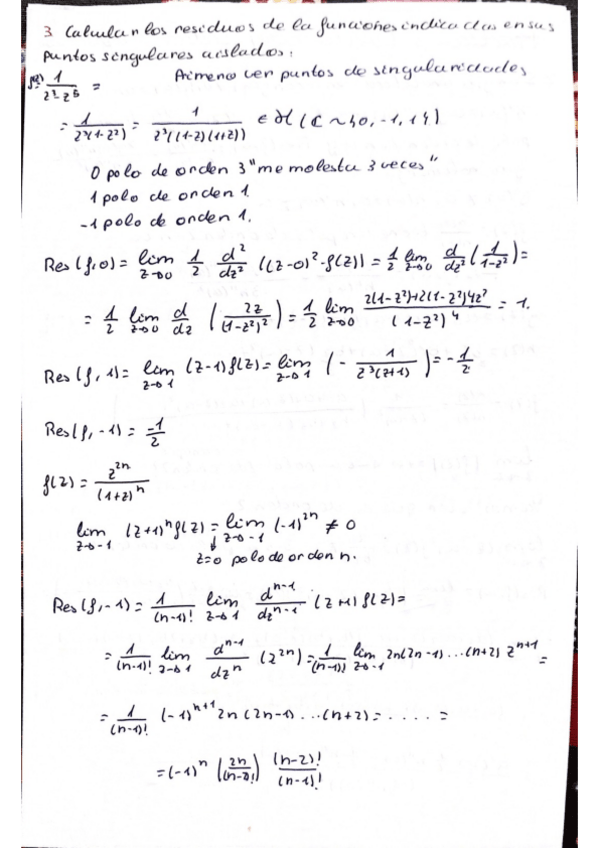 3. Calcular los residuos de la funciones indicadas en sus
puntos singulares aislados:
1/(z³-z⁵) = Primero ver puntos de singularidades
= 1/(z³(1-z²)) = 1/(z³((1-z)(1+z))) ∈ H(C ∼ {0, -1, 1})
0 polo de orden 3 "me molesta 3 veces"
1 polo de orden 1
-1 polo de orden 1.
Res(f,0) = lim z→0 1/2 d²/dz² ((z-0)²·f(z)) = 1/2 lim z→0 d/dz² (1/(1-z²)) =
= 1/2 lim z→0 d/dz (2z/(1-z²)²) = 1/2 lim z→0 (2(1-z²)+2(1-z²)4z²)/(1-z²)⁴ = 1.
Res(f,1) = lim z→1 (z-1)f(z) = lim z→1 (- 1/(z³(z+1))) = -1/2
Res(f,-1) = -1/2
f(z) = z²ⁿ/(1+z)ⁿ
lim z→-1 (z+1)ⁿ f(z) = lim z→-1 (-1)²ⁿ ≠ 0
z=0 polo de orden n.
Res(f,-1) = 1/(n-1)! lim z→1 dⁿ⁻¹/dzⁿ⁻¹ (z+1) f(z) =
= 1/(n-1)! lim z→1 dⁿ⁻¹/dzⁿ (z²ⁿ) = 1/(n-1)! lim z→-1 2n(2n-1)...(n+2) zⁿ⁺¹ =
= 1/(n-1)! (-1)ⁿ⁺¹ 2n(2n-1)...(n+2) = ..... =
= (-1)ⁿ (n-2)!/(n-1)!